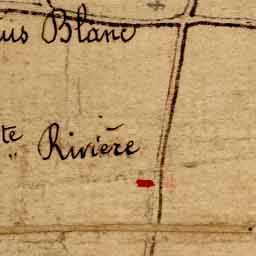 us Blanc
te
" Rivière